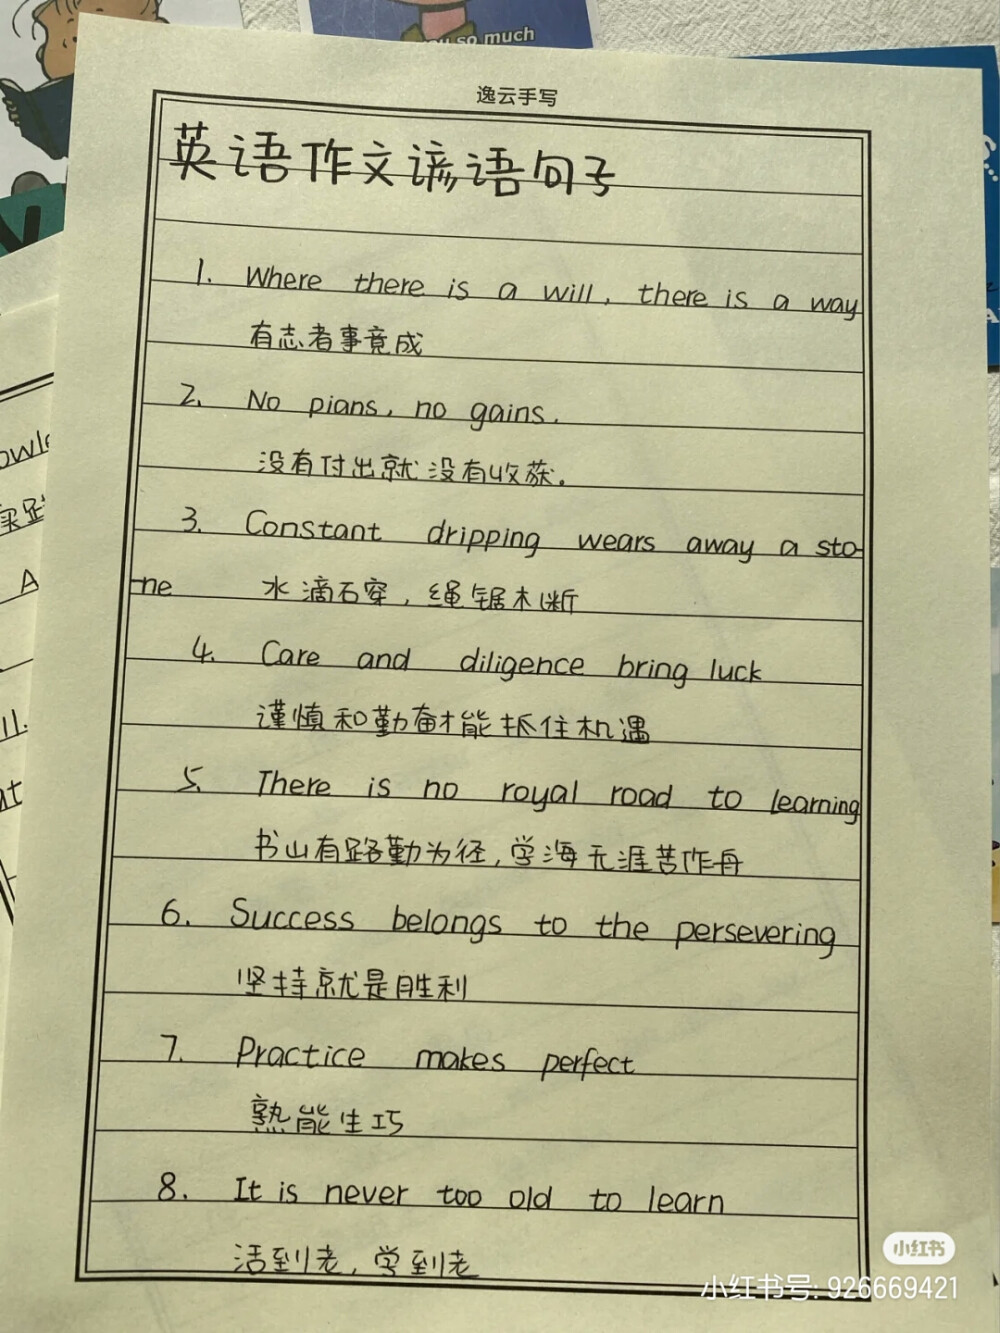 u so much
逸云手写
英语作文谚语句子
1. Where there is a will, there is a way
有志者事竟成
2. No pians, no gains.
没有付出就没有收获。
3. Constant dripping wears away a sto-
ne 水滴石穿，绳锯木断
4. Care and diligence bring luck
谨慎和勤奋才能抓住机遇
5. There is no royal road to learning
书山有路勤为径，学海无涯苦作舟
6. Success belongs to the persevering
坚持就是胜利
7. Practice makes perfect
熟能生巧
8. It is never too old to learn
活到老，学到老
小红书
小红书号: 926669421